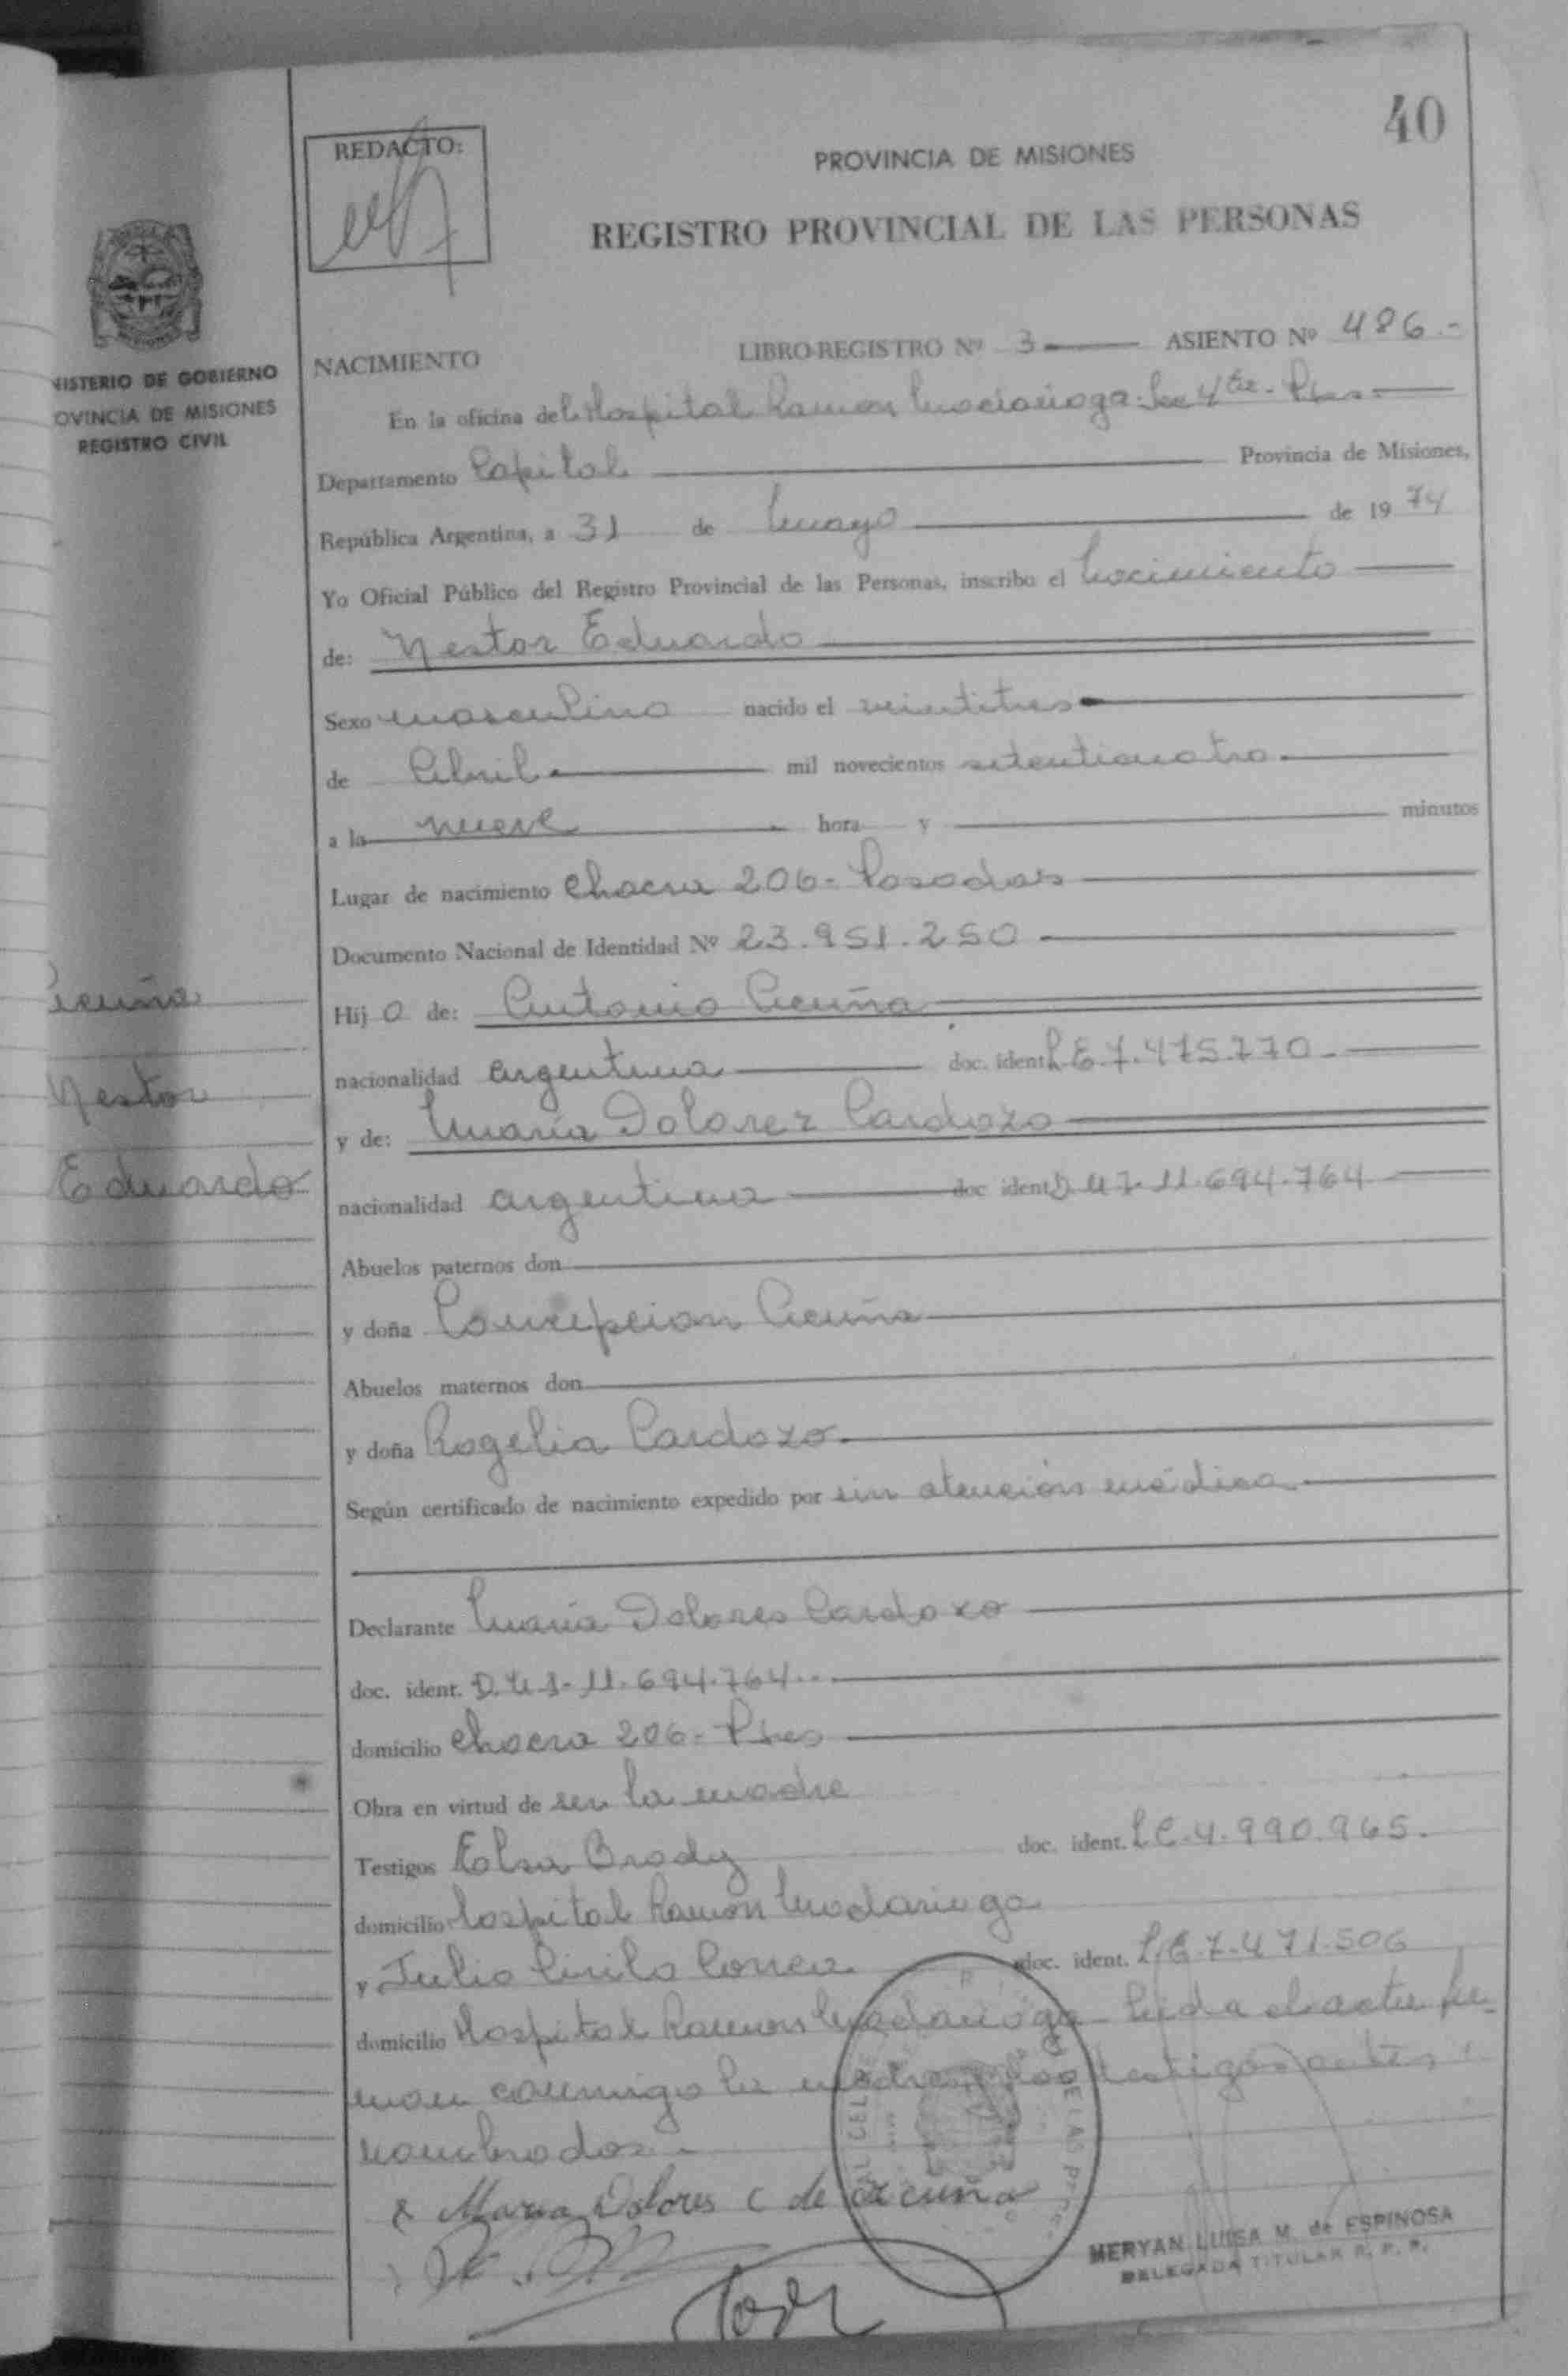 40
REDACTO:
PROVINCIA DE MISIONES
REGISTRO PROVINCIAL DE LAS PERSONAS
NISTERIO DE GOBIERNO
OVINCIA DE MISIONES
REGISTRO CIVIL
NACIMIENTO LIBRO-REGISTRO Nº 3 ASIENTO Nº 486.-
En la oficina del Hospital Ramon Madariaga
Departamento Capital Provincia de Misiones,
República Argentina, a 31 de Mayo de 1974
Yo Oficial Público del Registro Provincial de las Personas, inscribo el Nacimiento
de: Nestor Eduardo
Sexo masculino nacido el veintitres
de Abril mil novecientos setenticuatro
a la nueve hora y minutos
Lugar de nacimiento Chacra 206- Posadas
Documento Nacional de Identidad Nº 23.951.250
Acuña
Nestor
Eduardo
Hijo de: Antonio Acuña
nacionalidad argentina doc. ident. L.E 7.475.770
y de: Maria Dolorez Cardozo
nacionalidad argentina doc ident 11.694.764
Abuelos paternos don
y doña Concepcion Acuña
Abuelos maternos don
y doña Rogelia Cardozo
Según certificado de nacimiento expedido por sin atención médica
Declarante Maria Dolores Cardozo
doc. ident. 11.694.764
domicilio Chacra 206- Pdas
Obra en virtud de ser la madre
Testigos Elsa Brody doc. ident. L.C. 4.990.965.
domicilio Hospital Ramon Madariaga
y Julio Cirilo Correa doc. ident. L.E. 7.471.506
domicilio Hospital Ramon Madariaga Leida el acta fir-
man conmigo la madre y los testigos antes
nombrados.-
x Maria Dolores C de acuña
MERYAN LUISA M. de ESPINOSA
DELEGADA TITULAR R. P. P.